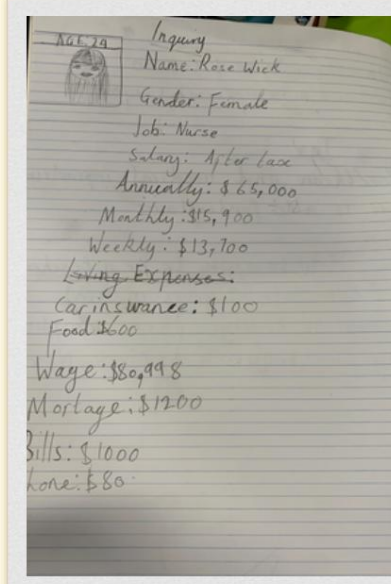 AGE 29
Inquiry
Name: Rose Wick
Gender: Female
Job: Nurse
Salary: After taxe
Annually: $65,000
Monthly: $15,900
Weekly: $13,700
Living Expenses:
Car insurance: $100
Food $600
Wage: $80,998
Mortage: $1200
Bills: $1000
hone: $80